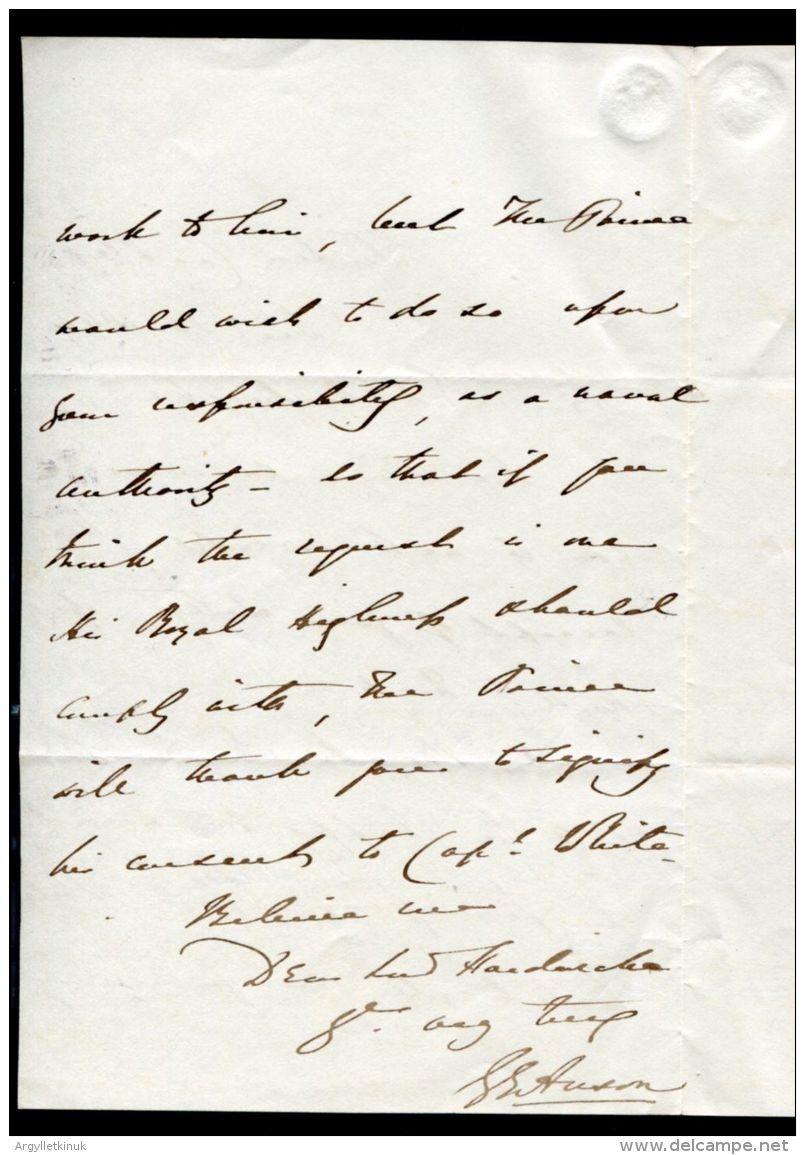 work to him, but The Prince
would wish to do so upon
your responsibility, as a naval
authority – so that if you
think the request is one
His Royal Highness should
comply with, The Prince
will thank you to signify
his consent to Capt. White.
Believe me
Dear Lord Hardwicke
Yrs. very truly
G E Anson
Argylletkinuk
delcampe.net